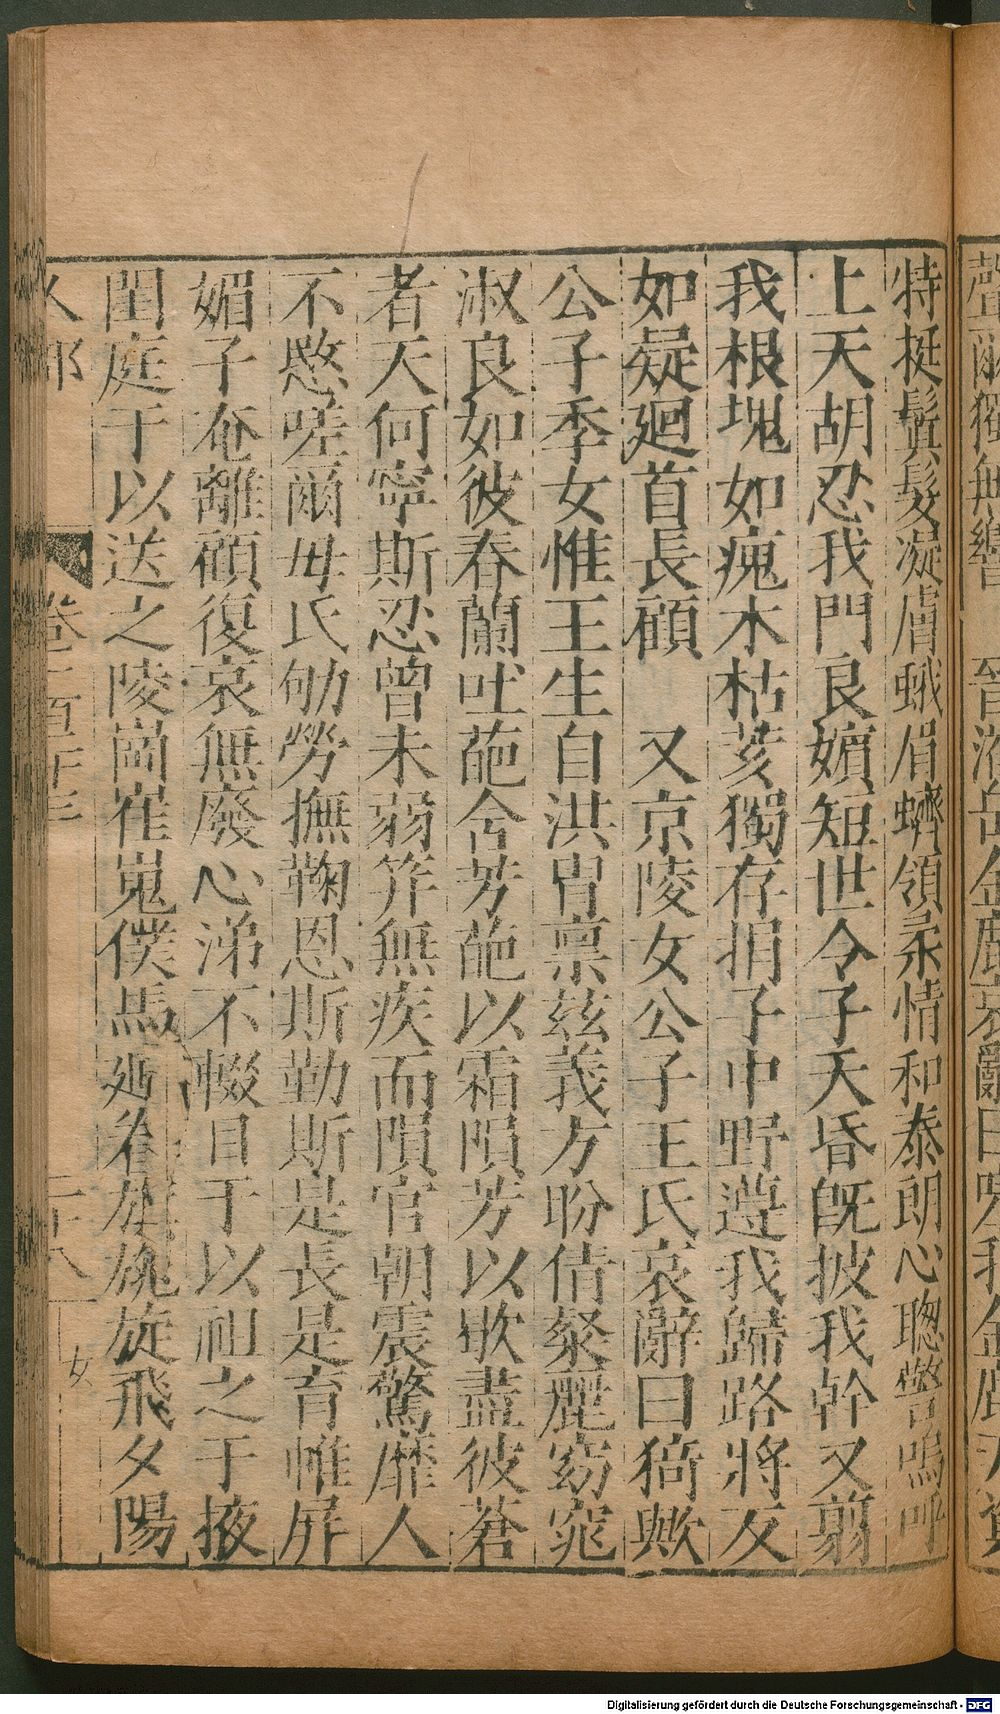 聲爾獨無響　晉潘岳金鹿哀辭曰嗟我金鹿天資
特挺鬒髮凝膚蛾眉蠐領柔情和泰朗心聰警嗚呼
上天胡忍我門良嬪短世令子夭昏旣披我幹又翦
我根塊如瘣木枯荄獨存捐子中野遵我歸路將反
如疑迴首長顧　又京陵女公子王氏哀辭曰猗歟
公子季女惟王生自洪胄禀茲義方盼倩粲麗窈窕
淑良如彼春蘭吐葩含芳葩以霜隕芳以歇盡彼蒼
者天何寧斯忍曾未弱笄無疾而隕官朝震驚靡人
不愍嗟爾母氏劬勞撫鞠恩斯勤斯是長是育帷屏
媚子奄離顧復哀無廢心涕不輟目于以祖之于掖
閨庭于以送之陵崗崔嵬僕馬廻眷旂旐旋飛夕陽
人部
卷二百五十三
二十八
女
Digitalisierung gefördert durch die Deutsche Forschungsgemeinschaft - DFG